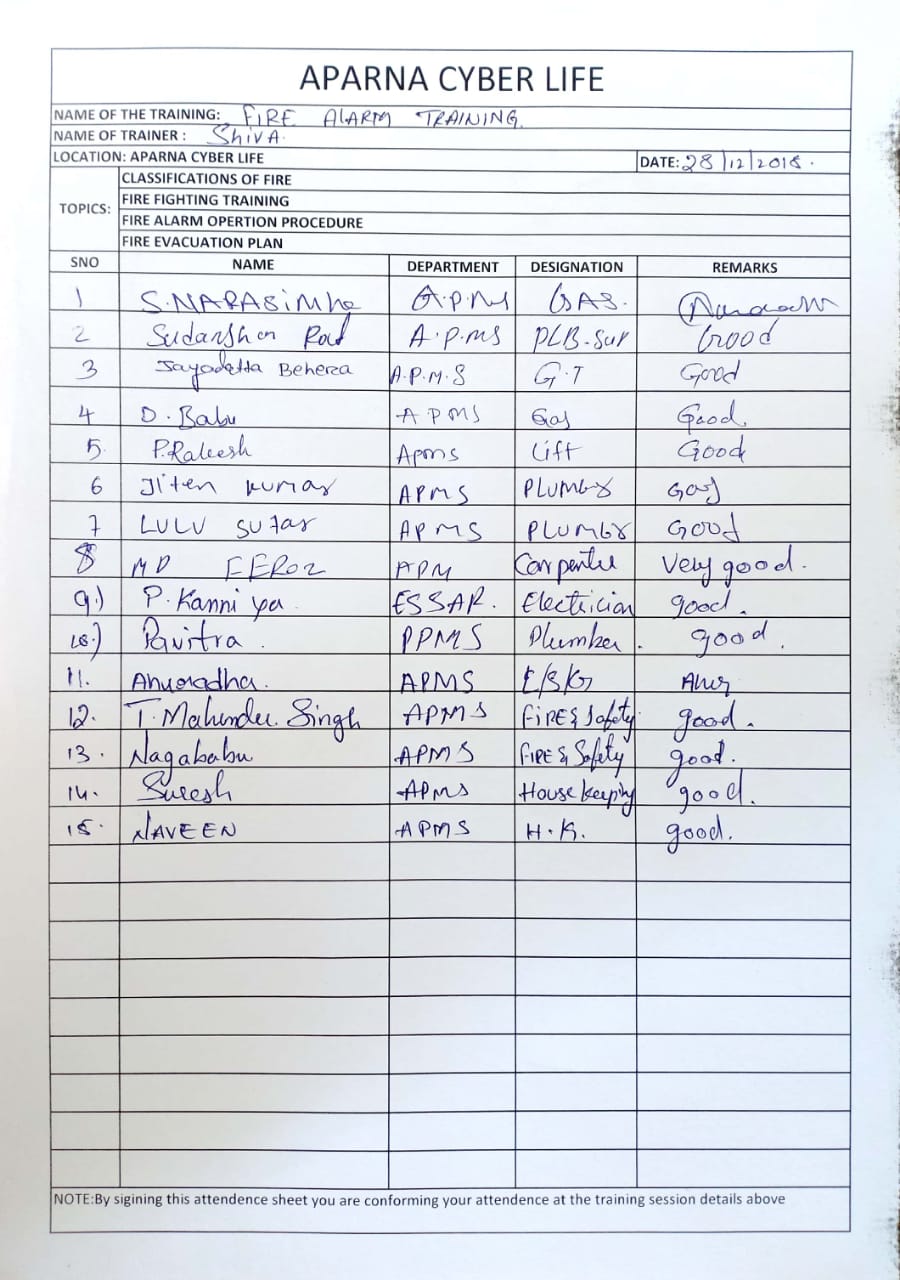 APARNA CYBER LIFE
NAME OF THE TRAINING: FIRE ALARM TRAINING.
NAME OF TRAINER : Shiva.
LOCATION: APARNA CYBER LIFE DATE: 28/12/2018.
TOPICS:
CLASSIFICATIONS OF FIRE
FIRE FIGHTING TRAINING
FIRE ALARM OPERTION PROCEDURE
FIRE EVACUATION PLAN
SNO NAME DEPARTMENT DESIGNATION REMARKS
1 S.NARASimha A.P.M GAS.
2 Sudarshan A.P.MS PLB-Sup Good
3 Jayadetta Behera A.P.M.S G.T Good
4 D. Babu APMS Gas Good.
5. P.Rakesh Apms Lift Good
6 Jiten kumar APMS PLUMBR
7 LULU SUTAR APMS PLUMBR GOOD
8 MD FEROZ APM Carpenter Very good.
9.) P. Kanniya. ESSAR. Electrician good.
10.) Pavitra. PPMS Plumber. good.
11. Anuradha. APMS
12. T. Mahender Singh APMS FIRE & Safety good.
13. Nagababu APMS FIRE & Safety good.
14. Suresh APMS House keeping good.
15. NAVEEN APMS H.K. good.
NOTE:By sigining this attendence sheet you are conforming your attendence at the training session details above